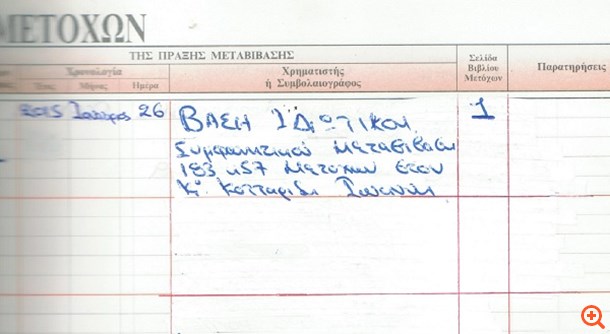 ΜΕΤΟΧΩΝ
ΤΗΣ ΠΡΑΞΗΣ ΜΕΤΑΒΙΒΑΣΗΣ
Χρονολογία
Έτος Μήνας Ημέρα
Χρηματιστής
ή Συμβολαιογράφος
Σελίδα
Βιβλίου
Μετόχων
Παρατηρήσεις
2015 26
ΒΑΣΗ ΙΔΙΩΤΙΚΟΥ
1
Συμφωνητικού Μεταβίβαση
183 Μετοχών στον
Κο.